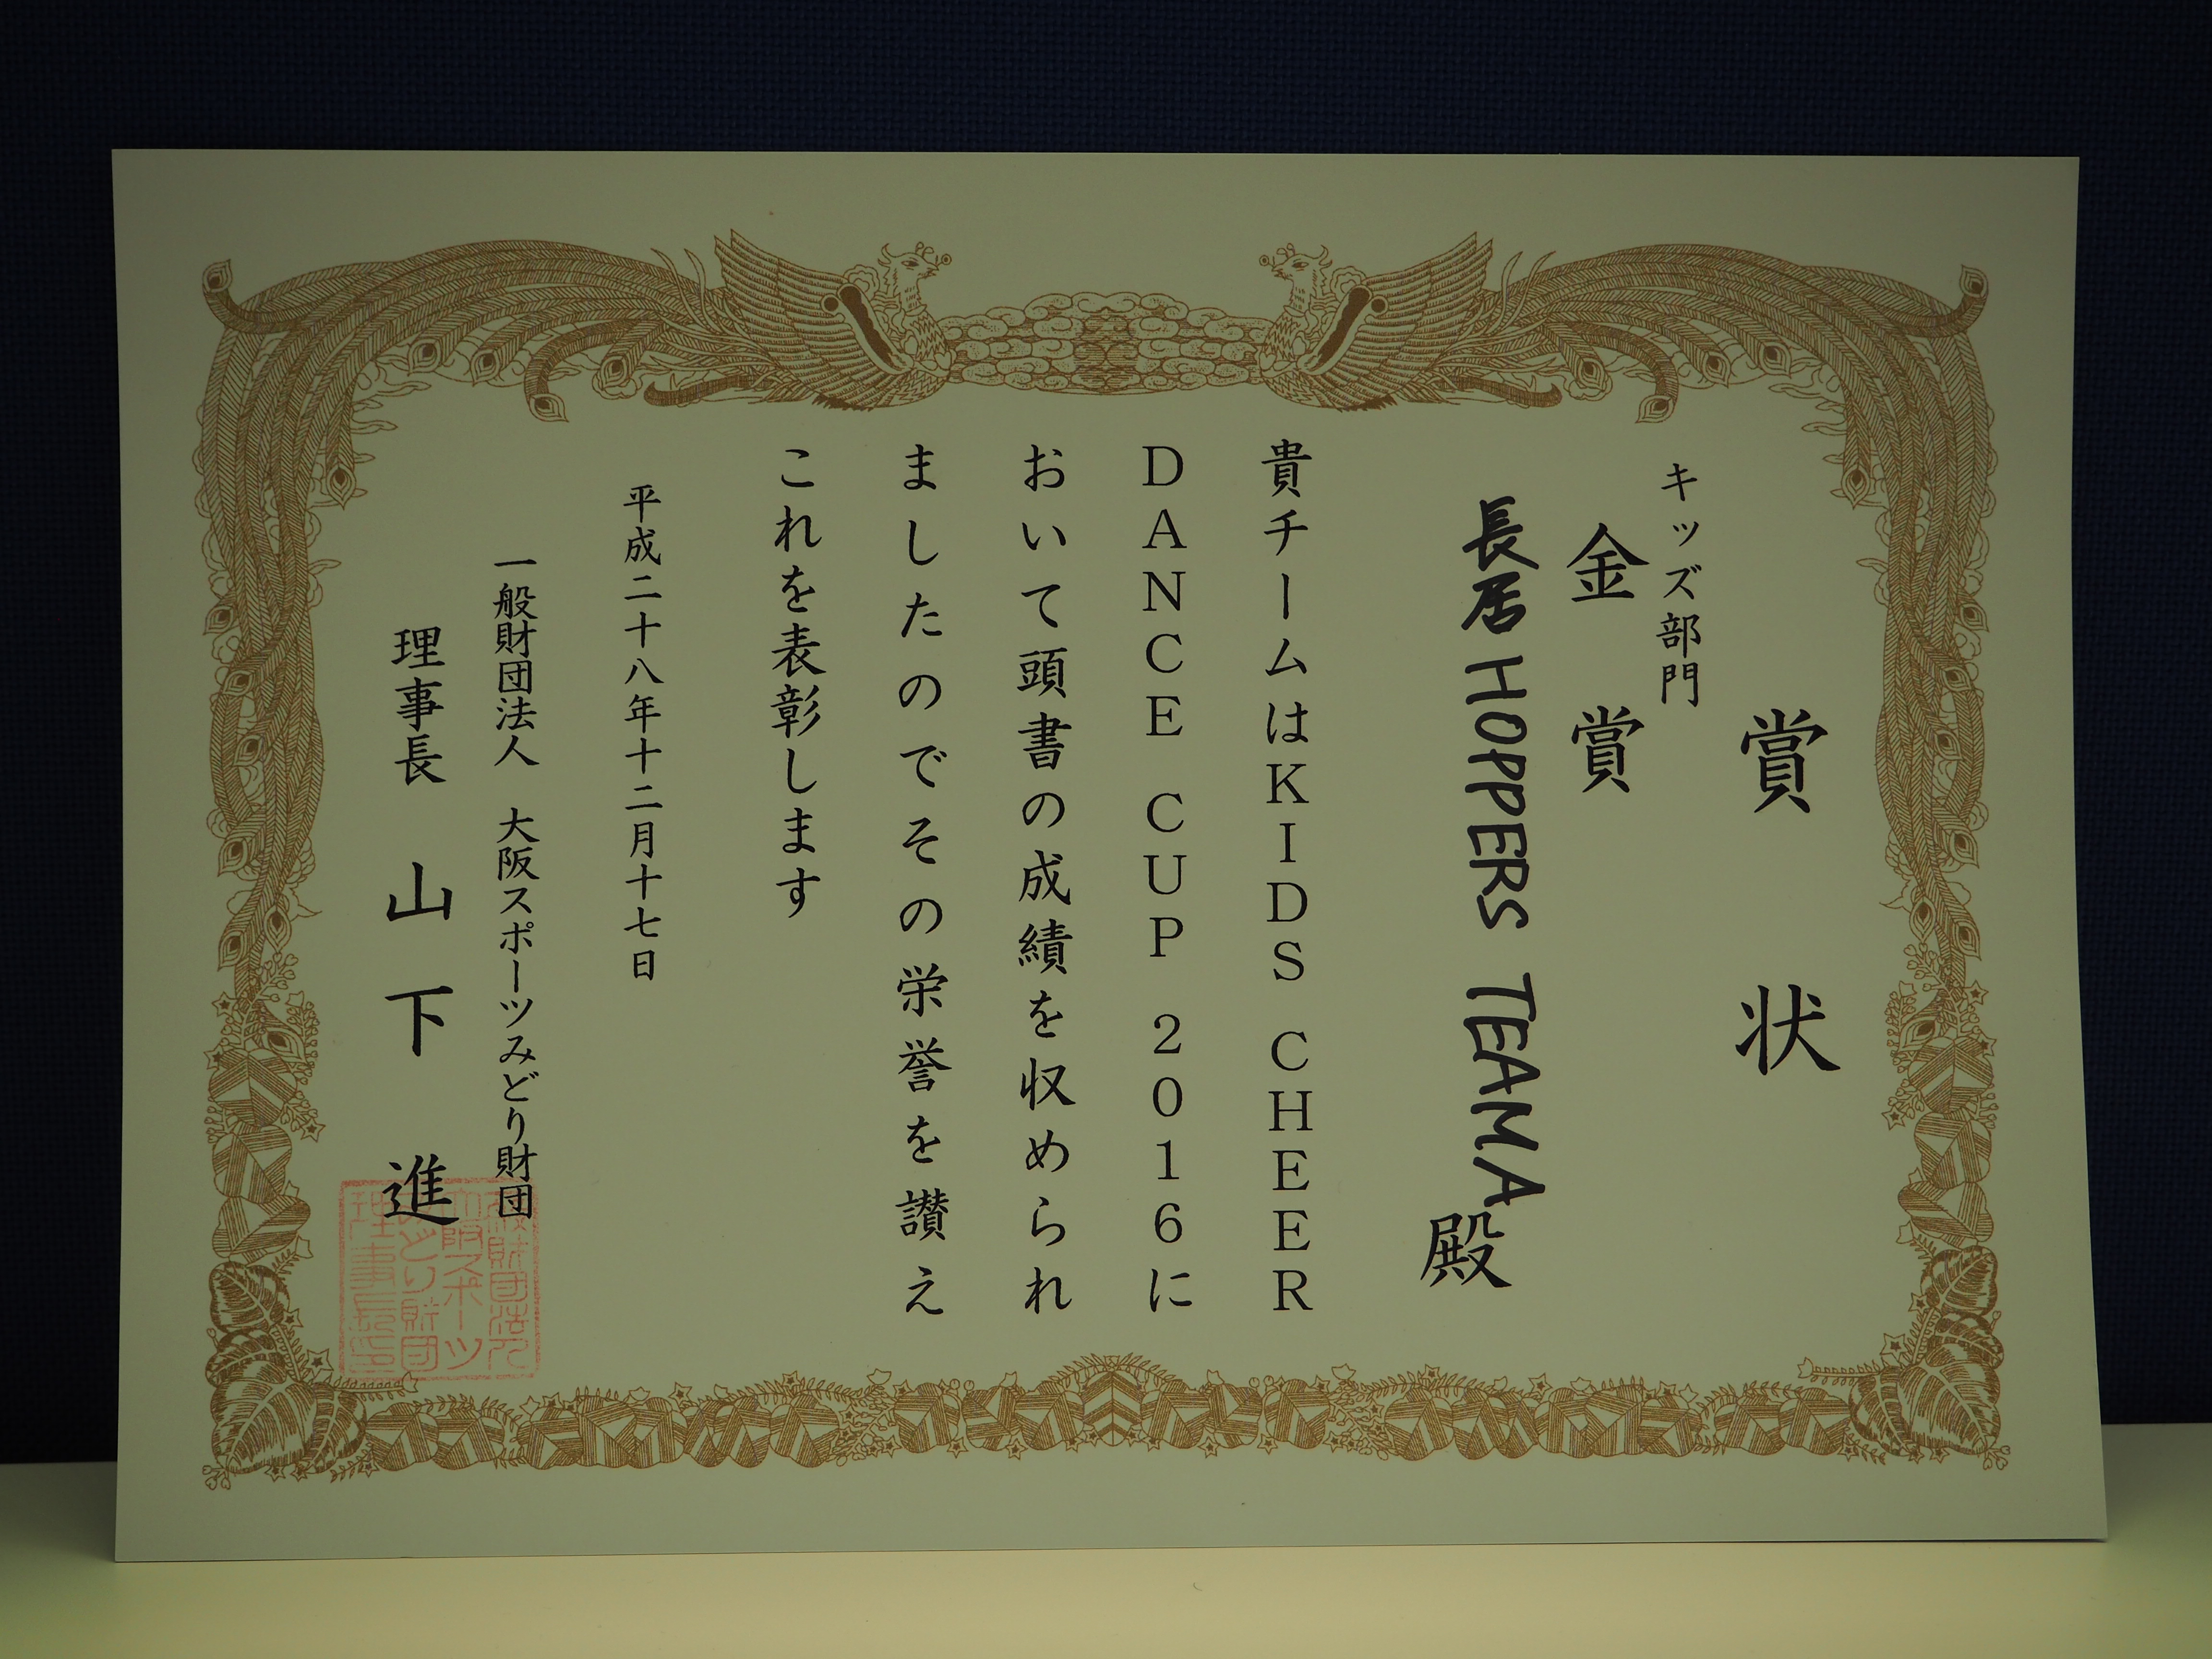 賞状
キッズ部門
金賞
長居 HOPPERS TEAMA 殿
貴チームはKIDS CHEER
DANCE CUP 2016に
おいて頭書の成績を収められ
ましたのでその栄誉を讃え
これを表彰します
平成二十八年十二月十七日
一般財団法人 大阪スポーツみどり財団
理事長 山下 進
一般財団法人
大阪スポーツ
みどり財団
理事長印